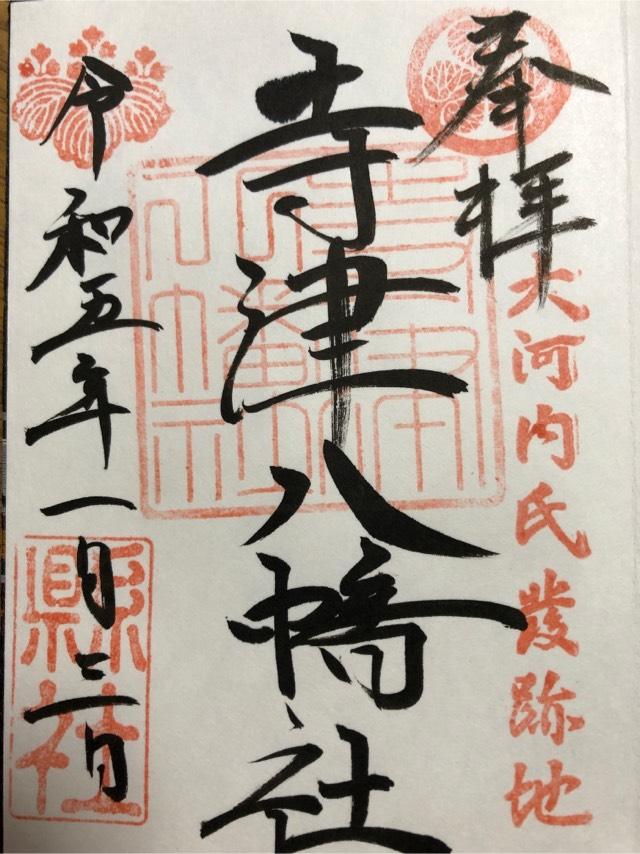 奉拝
大河内氏發跡地
寺津八幡社
寺津八幡社
令和五年一月三日
縣社